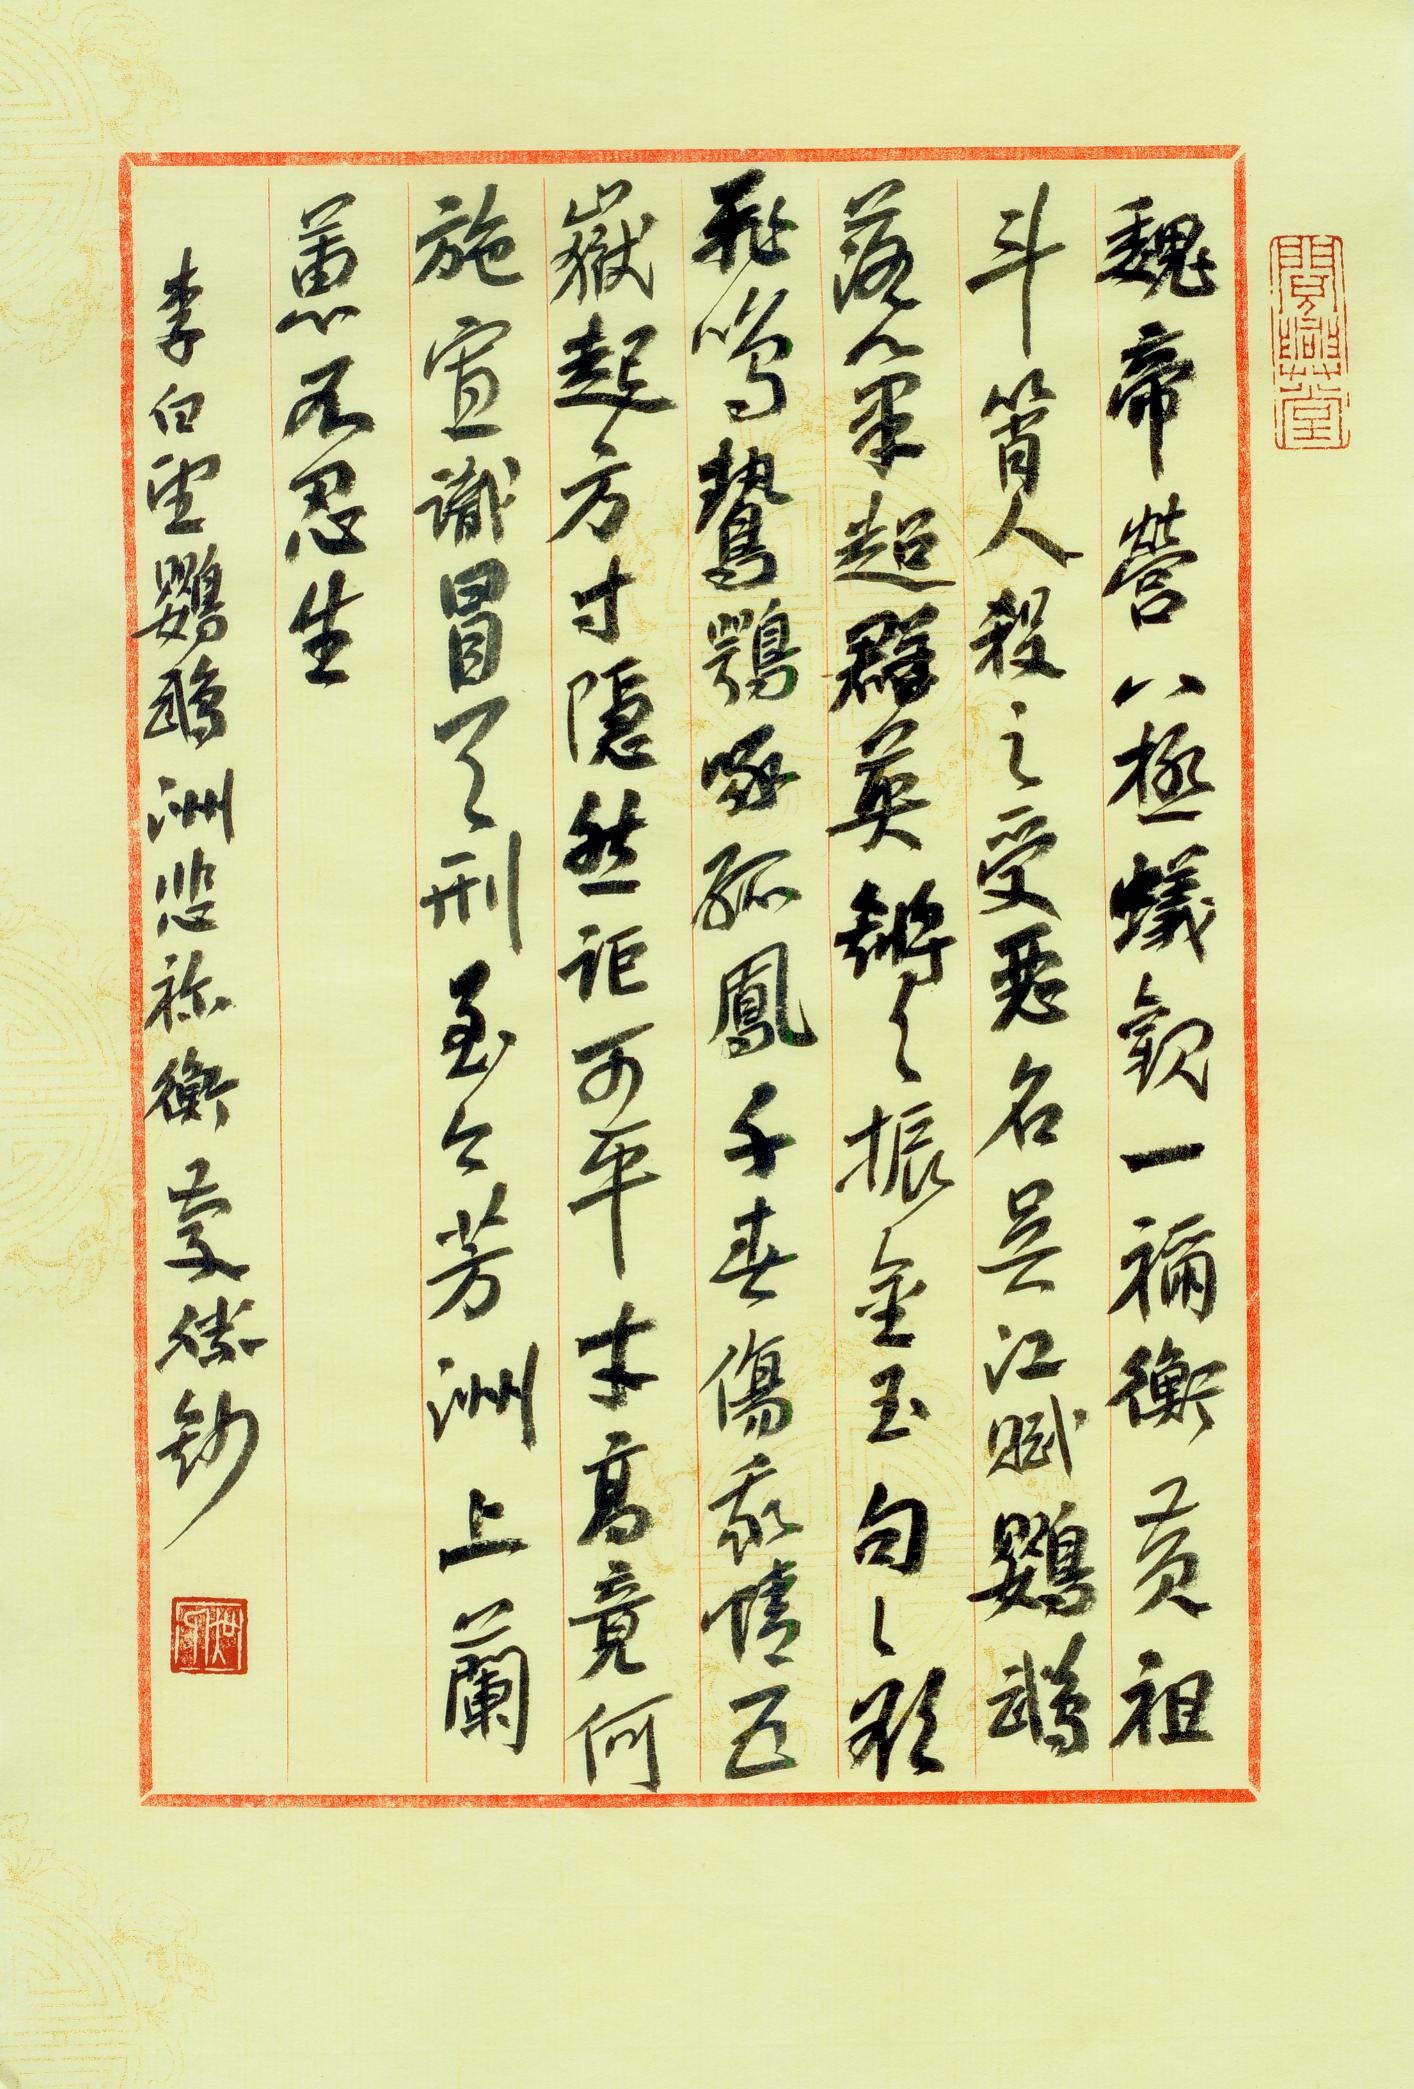 魏帝營八極蟻觀一禰衡黃祖
斗筲人殺之受惡名吳江賦鸚鵡
落筆超群英鏘々振金玉句々欲
飛鳴鷙鶚啄孤鳳千春傷我情五
嶽起方寸隱然詎可平才高竟何
施寡識冒天刑至今芳洲上蘭
蕙不忍生
李白望鸚鵡洲悲祢衡 鈔